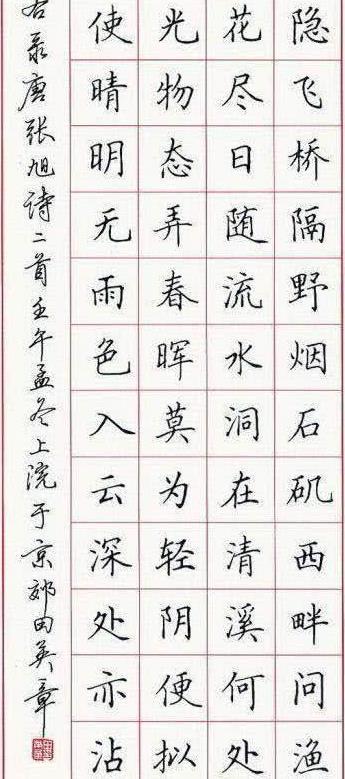 隐飞桥隔野烟石矶西畔问渔
花尽日随流水洞在清溪何处
光物态弄春晖莫为轻阴便拟
使晴明无雨色入云深处亦沾
右录唐张旭诗二首壬午孟冬上浣于京郊田英章